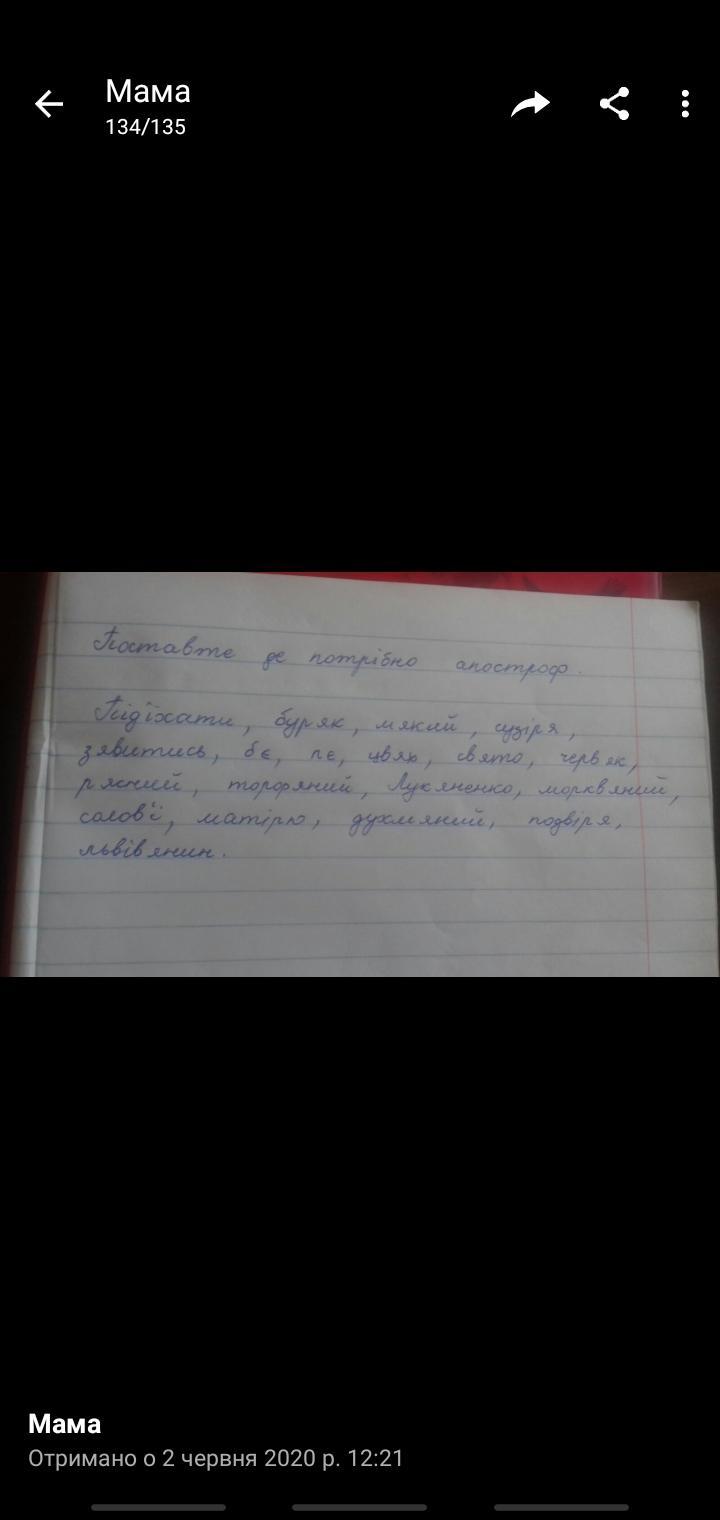 Мама
134/135
Поставте де потрібно апостроф.
Підїхати, буряк, мякий, сузіря,
зявитись, бє, пє, цвях, свято, червяк,
рясний, торфяний, Лукяненко, морквяний,
соловї, матірю, духмяний, подвіря,
львівянин.
Мама
Отримано о 2 червня 2020 р. 12:21